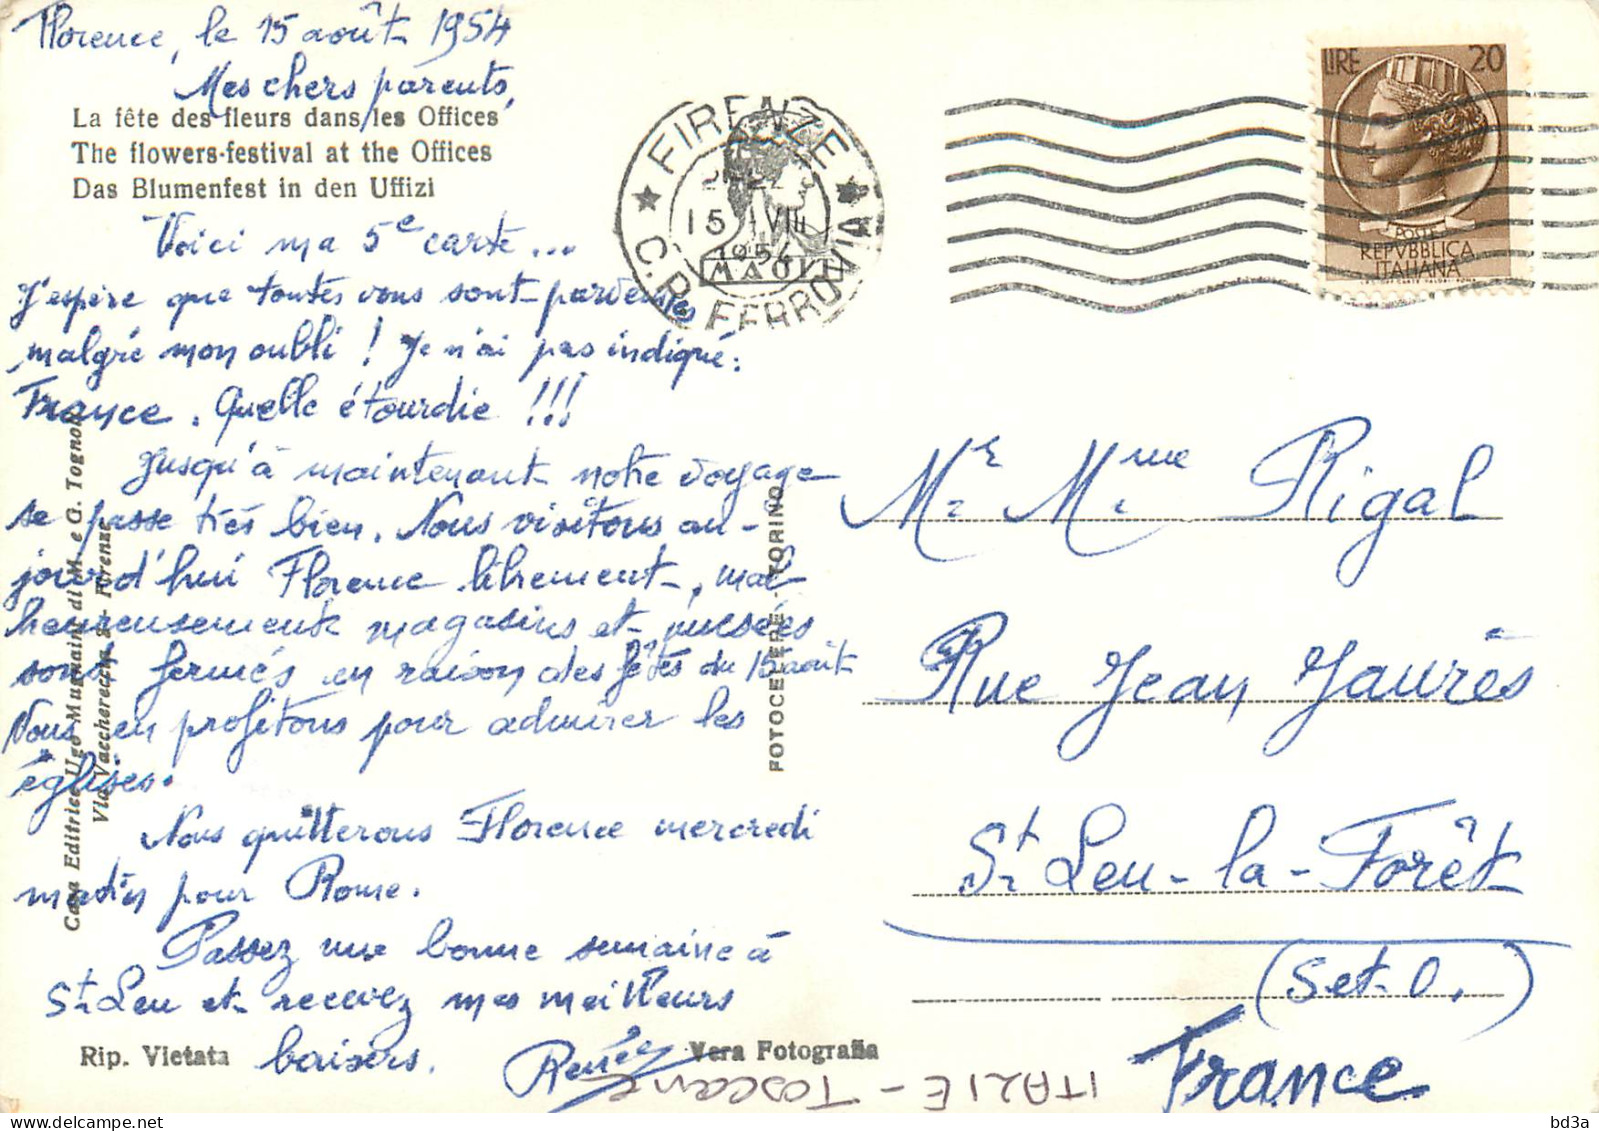 Florence, le 15 août 1954
Mes chers parents,
La fête des fleurs dans les Offices
The flowers-festival at the Offices
Das Blumenfest in den Uffizi
Voici ma 5e carte...
J'espère que toutes vous sont parvenues
malgré mon oubli ! Je n'ai pas indiqué:
France. Quelle étourdie !!!
Jusqu'à maintenant notre voyage
se passe très bien. Nous visitons au-
jourd'hui Florence librement, mal-
heureusement magasins et musées
sont fermés en raison des fêtes du 15 août
Nous en profitons pour admirer les
églises.
Nous quitterons Florence mercredi
matin pour Rome.
Passez une bonne semaine à
St Leu et recevez mes meilleurs
baisers. Renée
Rip. Vietata
Vera Fotografia
Casa Editrice Ugo Mugnaini di M. e G. Tognoli
Via Vacchereccia - Firenze
FOTOCELERE - TORINO
FIRENZE
15 VIII
1954
C.P. FERROVIA
LIRE 20
POSTE
REPVBBLICA
ITALIANA
Mr Mme Rigal
Rue Jean Jaurès
St Leu-la-Forêt
(S et O.)
France
ITALIE - Toscane
bd3a